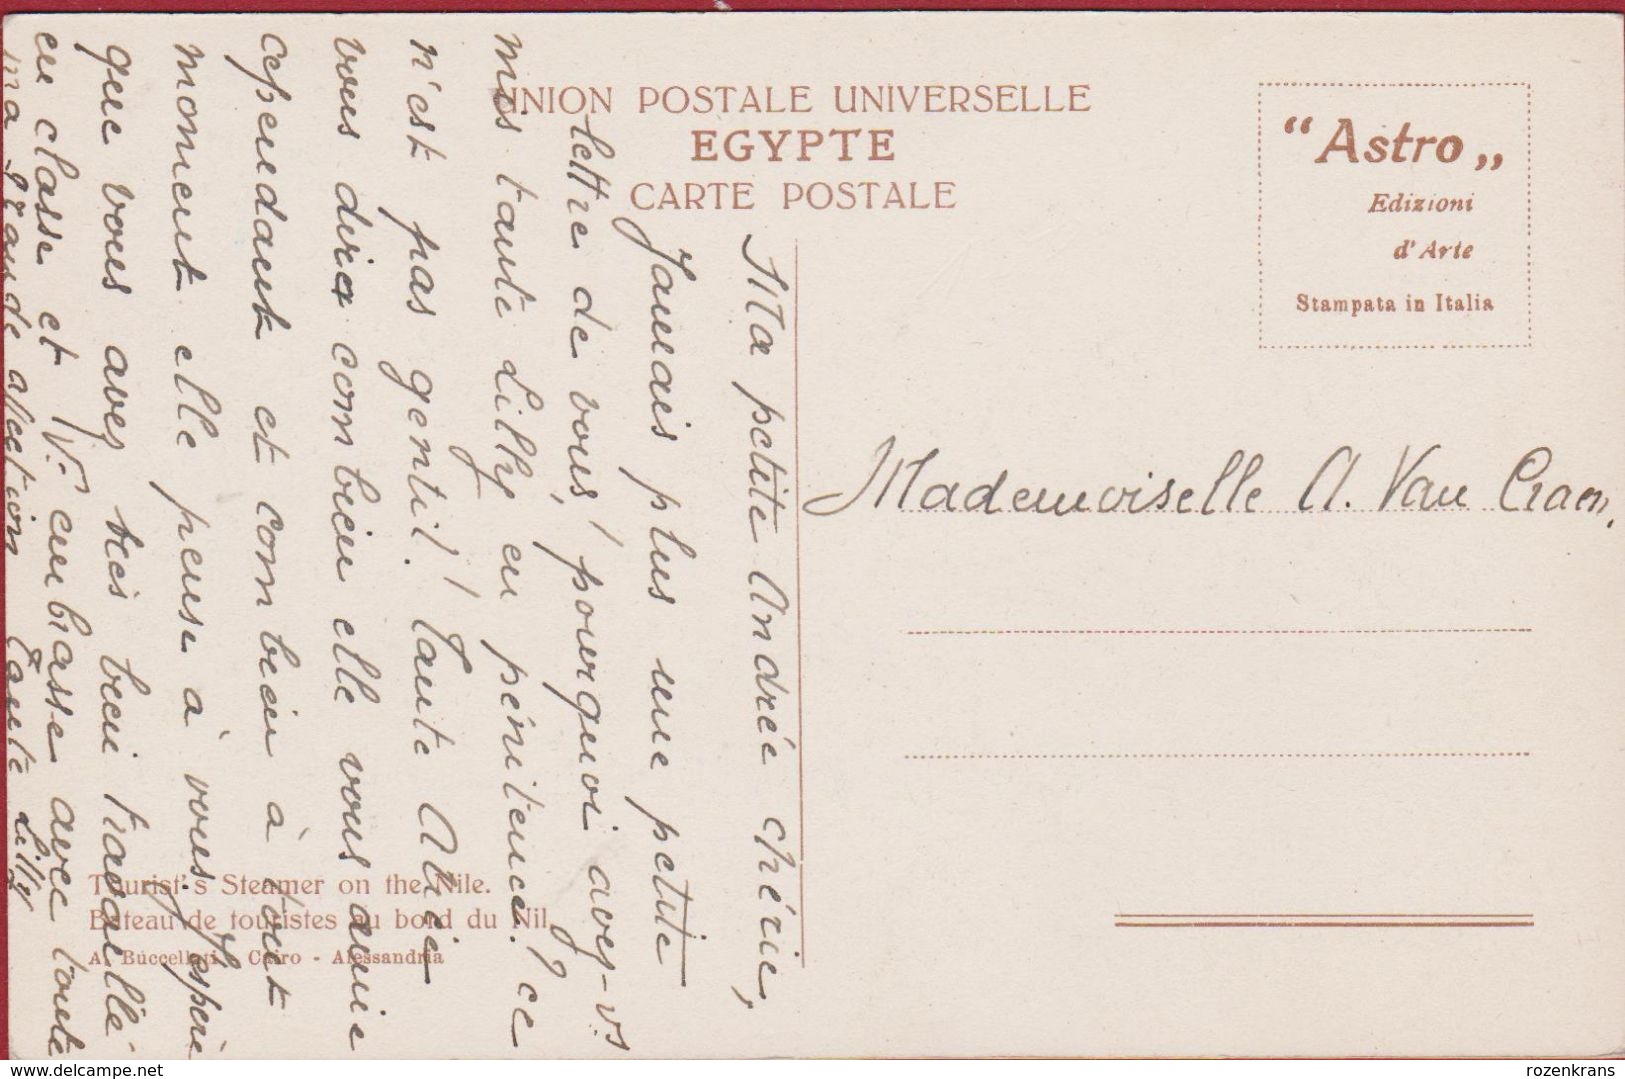 UNION POSTALE UNIVERSELLE
EGYPTE
CARTE POSTALE
"Astro„
Edizioni
d'Arte
Stampata in Italia
Mademoiselle A. Van Craen.
Ma petite Andrée chérie,
Jamais plus une petite
lettre de vous, pourquoi avez-vs
mis tante Lilly en pénitence? ce
n'est pas gentil! Tante Alice
vous dira combien elle vous aime
cependant et combien à tout
moment elle pense à vous. J'espère
que vous avez très bien travaillé
en classe et v. embrasse avec toute
ma grande affection Tante Lilly
Tourist's Steamer on the Nile.
Bateau de touristes au bord du Nil.
A. Buccellati - Cairo - Alessandria
delcampe.net
rozenkrans